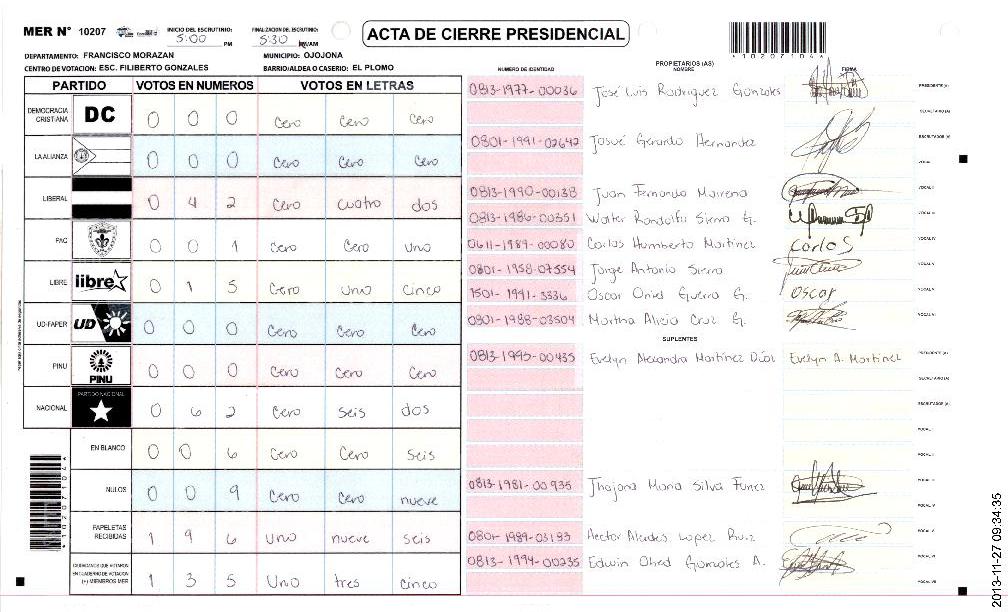 MER N° 10207
INICIO DEL ESCRUTINIO: 5:00 PM
FINALIZACION DEL ESCRUTINIO: 5:30
ACTA DE CIERRE PRESIDENCIAL
*10207104*
DEPARTAMENTO: FRANCISCO MORAZAN MUNICIPIO: OJOJONA
CENTRO DE VOTACION: ESC. FILIBERTO GONZALES BARRIO/ALDEA O CASERIO: EL PLOMO
PARTIDO VOTOS EN NUMEROS VOTOS EN LETRAS
DEMOCRACIA CRISTIANA DC 0 0 0 Cero Cero Cero
LA ALIANZA 0 0 0 Cero Cero Cero
LIBERAL 0 4 2 Cero cuatro dos
PAC 0 0 1 Cero Cero uno
LIBRE libre 0 1 5 Cero uno cinco
UD-FAPER UD 0 0 0 Cero Cero Cero
PINU PINU 0 0 0 Cero Cero Cero
NACIONAL PARTIDO NACIONAL 0 6 2 Cero seis dos
EN BLANCO 0 0 6 Cero Cero seis
NULOS 0 0 9 Cero Cero nueve
PAPELETAS RECIBIDAS 1 9 6 uno nueve seis
CIUDADANOS QUE VOTARON EN CUADERNO DE VOTACION (+) MIEMBROS MER 1 3 5 Uno tres cinco
*10207104*
NUMERO DE IDENTIDAD PROPIETARIOS (AS) NOMBRE FIRMA
0813-1977-00036 José Luis Rodriguez Gonzales PRESIDENTE (A)
SECRETARIO (A)
0801-1991-02642 Josué Gerardo Hernandez ESCRUTADOR (A)
VOCAL I
0813-1990-00138 Juan Fernando Mairena VOCAL II
0813-1986-00351 Walter Rondolfo Sierra G. VOCAL III
0611-1989-00080 Carlos Humberto Martinez Carlos VOCAL IV
0801-1958-07554 Jorge Antonio Sierra VOCAL V
1501-1991-3336 Oscar Oniel Guerra G. Oscar
0801-1988-03504 Martha Alicia Cruz G.
SUPLENTES
0813-1995-00435 Evelyn Alexandra Martínez Evelyn A. Martínez PRESIDENTE (A)
SECRETARIO (A)
ESCRUTADOR (A)
VOCAL I
VOCAL II
0813-1981-00935 Maria Silva Funez
0801-1989-03193 Hector Alcides Lopez Ruiz
0813-1994-00235 Edwin Obed Gonzales A.
2013-11-27 09:34:35